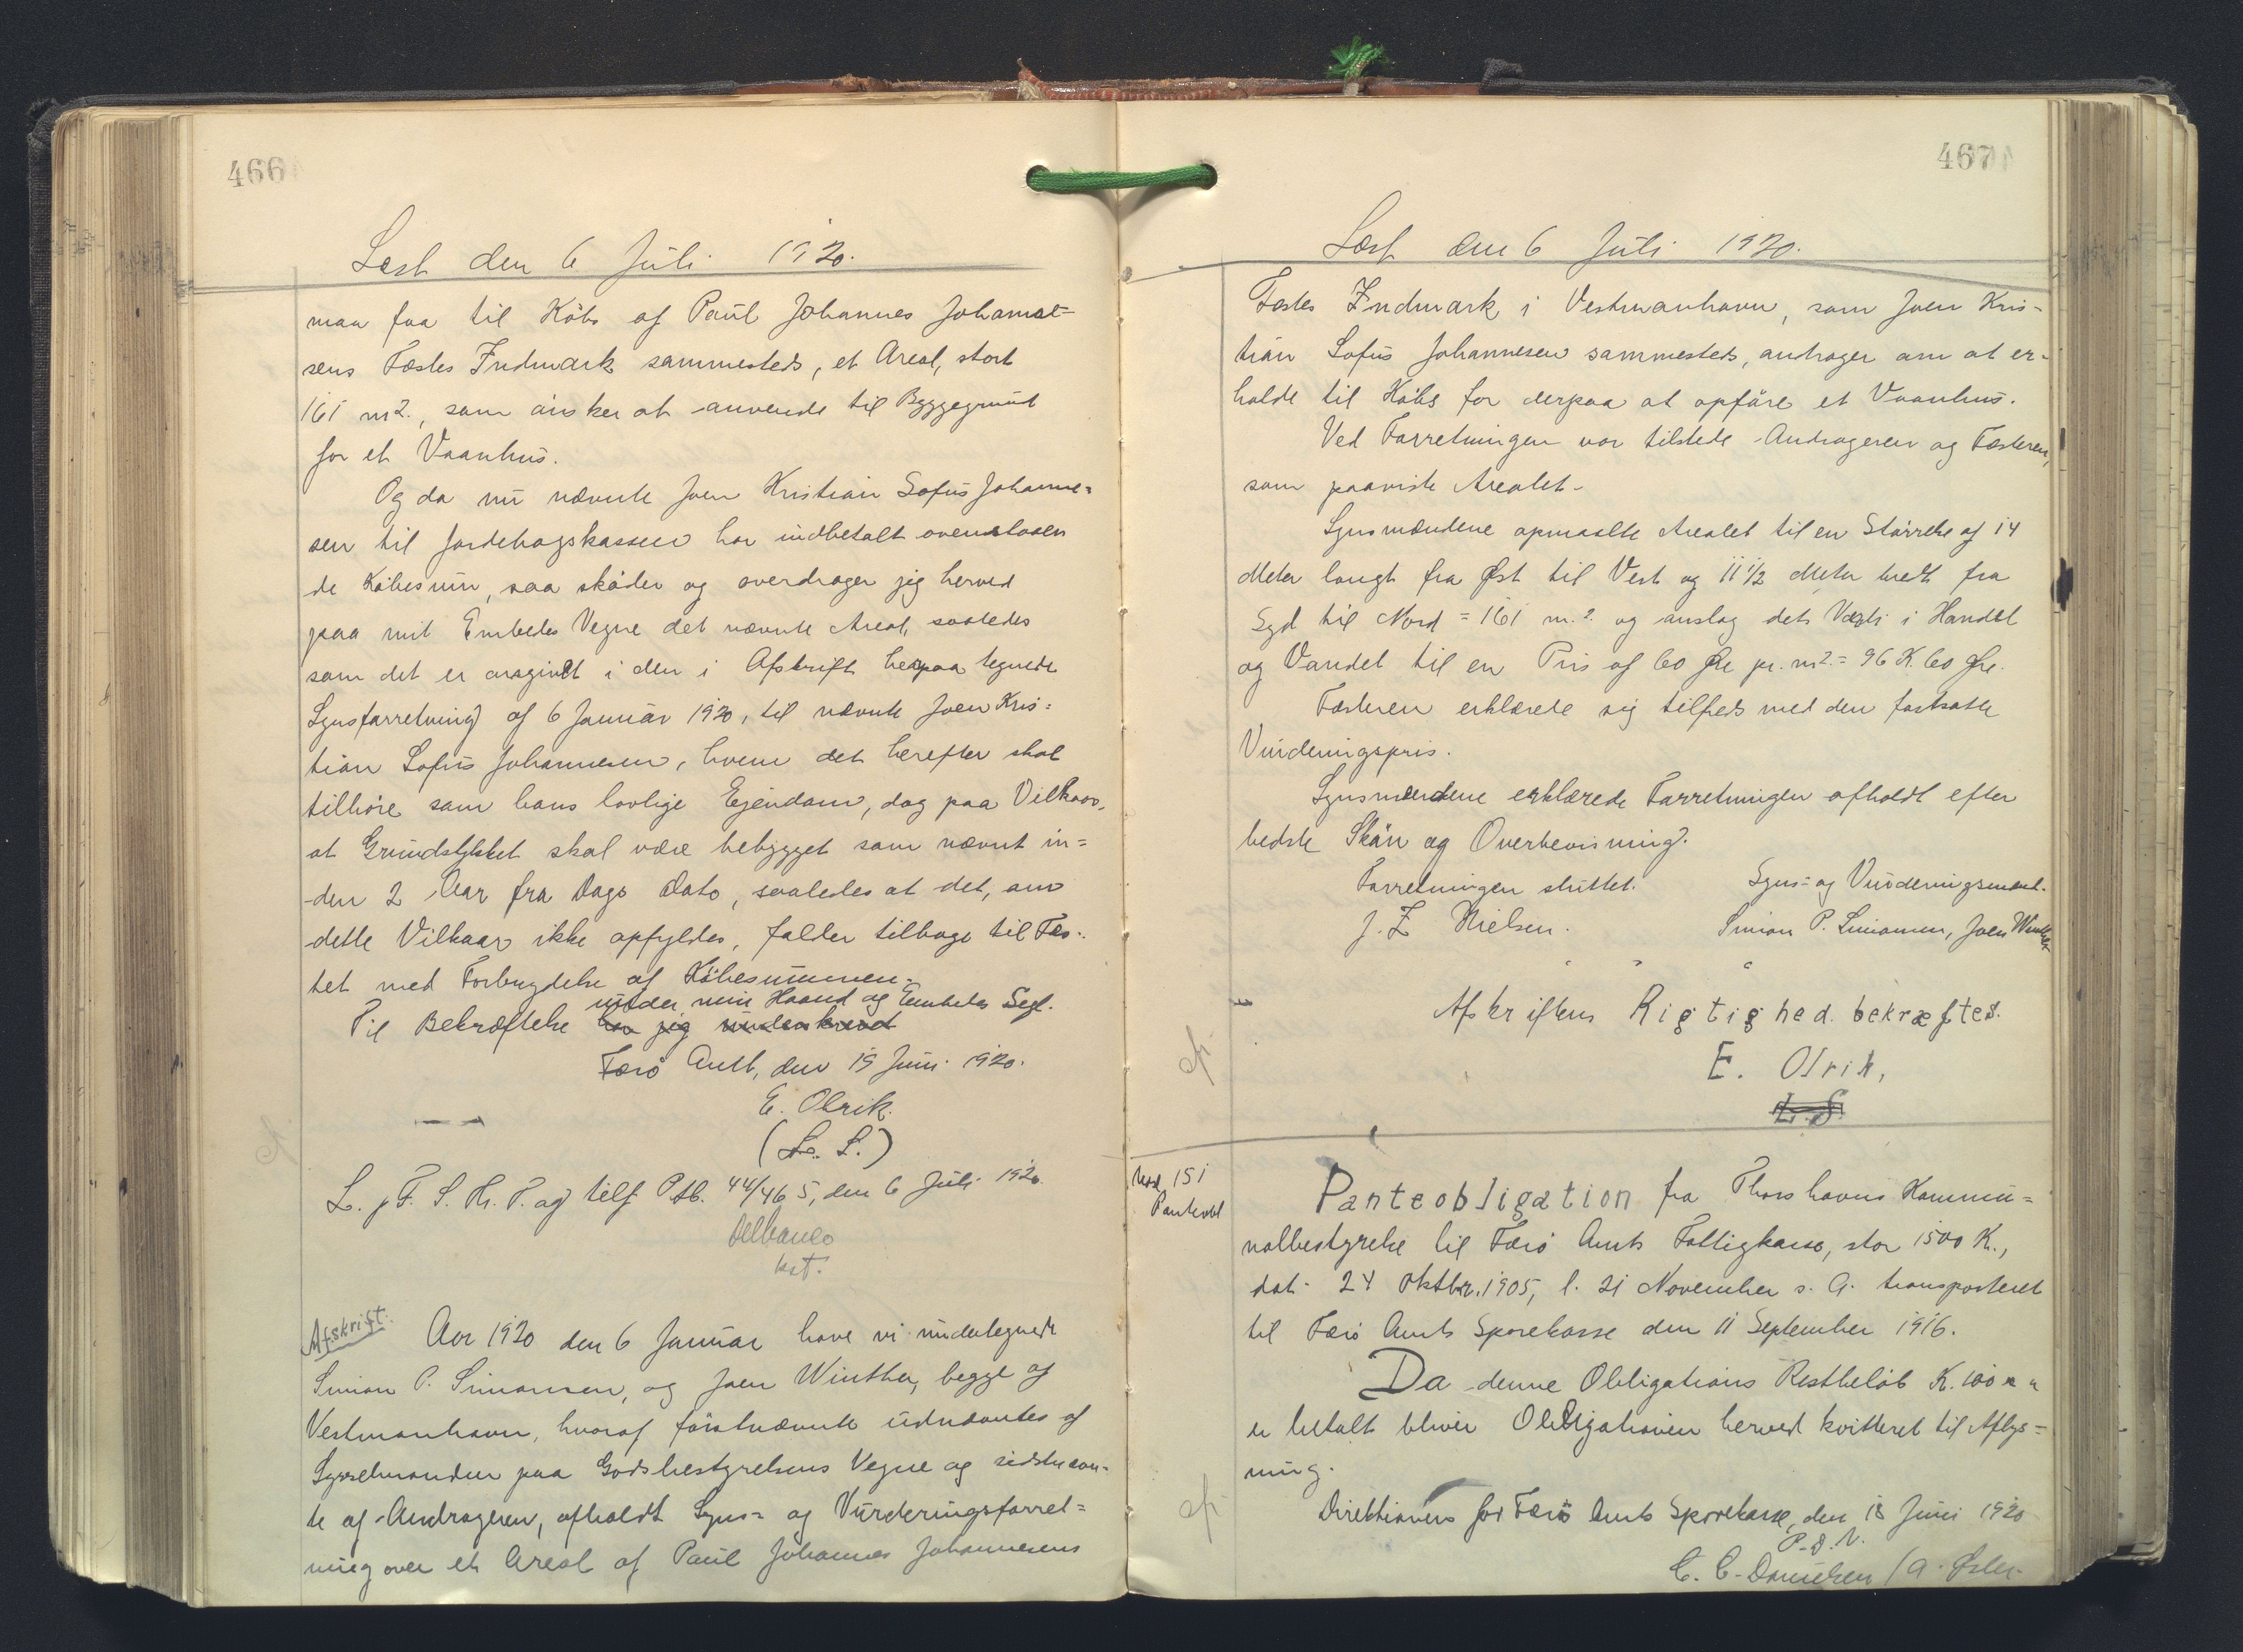 466
Læst den 6 Juli 1920.
maa faa til Købs af Paul Johannes Johanne=
sens Fæstes Indmark sammesteds, et Areal, stort
161 m2., som önsker at anvende til Byggegrund
for et Vaanhus.
Og da nu nævnte Joen Kristian Sofus Johanne=
sen til Jordebogskassen har indbetalt ovenstaaen
de Købesum, saa skøder og overdrager jeg herved
paa mit Embedes Vegne det nævnte Areal, saaledes
som det er angivet i den i Afskrift herpaa tegnede
Synsforretning af 6 Januar 1920, til nævnte Joen Kris=
tian Sofus Johannesen, hvem det herefter skal
tilhøre som hans lovlige Ejendom, dog paa Vilkaar,
at Grundstykket skal være bebygget som nævnt in=
den 2 Aar fra Dags Dato, saaledes at det, om
dette Vilkaar ikke opfyldes, falder tilbage til Fæs-
tet med Forbrydelse af Købesummen.
under min Haand og Embedes Segl.
Til Bekræftelse har jeg underskrevet
Færø Amt, den 15 Juni 1920.
E. Olrik.
(L. S.)
L. p F. S. Th. T. og tilf. Ptb. 44/465, den 6 Juli 1920
Delbanco
kst.
Afskrift.
Aar 1920 den 6 Januar have vi undertegnede
Simon P. Simonsen, og Joen Winther, begge af
Vestmanhavn, hvoraf förstnævnte udnævntes af
Sysselmanden paa Godsbestyrelsens Vegne og sidstnævn-
te af Andrageren, afholdt Syns= og Vurderingsforret=
ning over et Areal af Paul Johannes Johannesens
467
Læst den 6 Juli 1920.
Fæstes Indmark i Vestmanhavn, som Joen Kris=
tian Sofus Johannesen sammesteds, andrager om at er-
holde til Købs for derpaa at opføre et Vaanhus.
Ved Forretningen var tilstede Andrageren og Fæsteren,
som paaviste Arealet.
Synsmændene opmaalte Arealet til en Størrelse af 14
Meter langt fra Øst til Vest og 11 1/2 Meter bredt fra
Syd til Nord = 161 m.2. og anslog dets Værdi i Handel
og Vandel til en Pris af 60 Øre pr. m2. = 96 K. 60 Øre.
Fæsteren erklærede sig tilfreds med den fastsatte
Vurderingspris.
Synsmændene erklærede Forretningen afholdt efter
bedste Skön og Overbevisning.
Forretningen sluttet. Syns= og Vurderingsmænd.
J. Z Nielsen. Simon P. Simonsen, Joen Winther
Afskriftens Rigtighed bekræftes.
E. Olrik,
L. S.
Nrd 151
Panteobl
Panteobligation fra Thorshavns Kommu=
nalbestyrelse til Færø Amts Fattigkasse, stor 1500 K.,
dat. 24 Oktbr. 1905, l. 21 November s. A. transporteret
til Færø Amts Sparekasse den 11 September 1916.
Da denne Obligations Restbeløb K. 100 " "
er betalt bliver Obligationen herved kvitteret til Aflys=
ning.
Direktionen for Færø Amts Sparekasse, den 18 Juni 1920
P. D. V.
C. C. Danielsen / A.